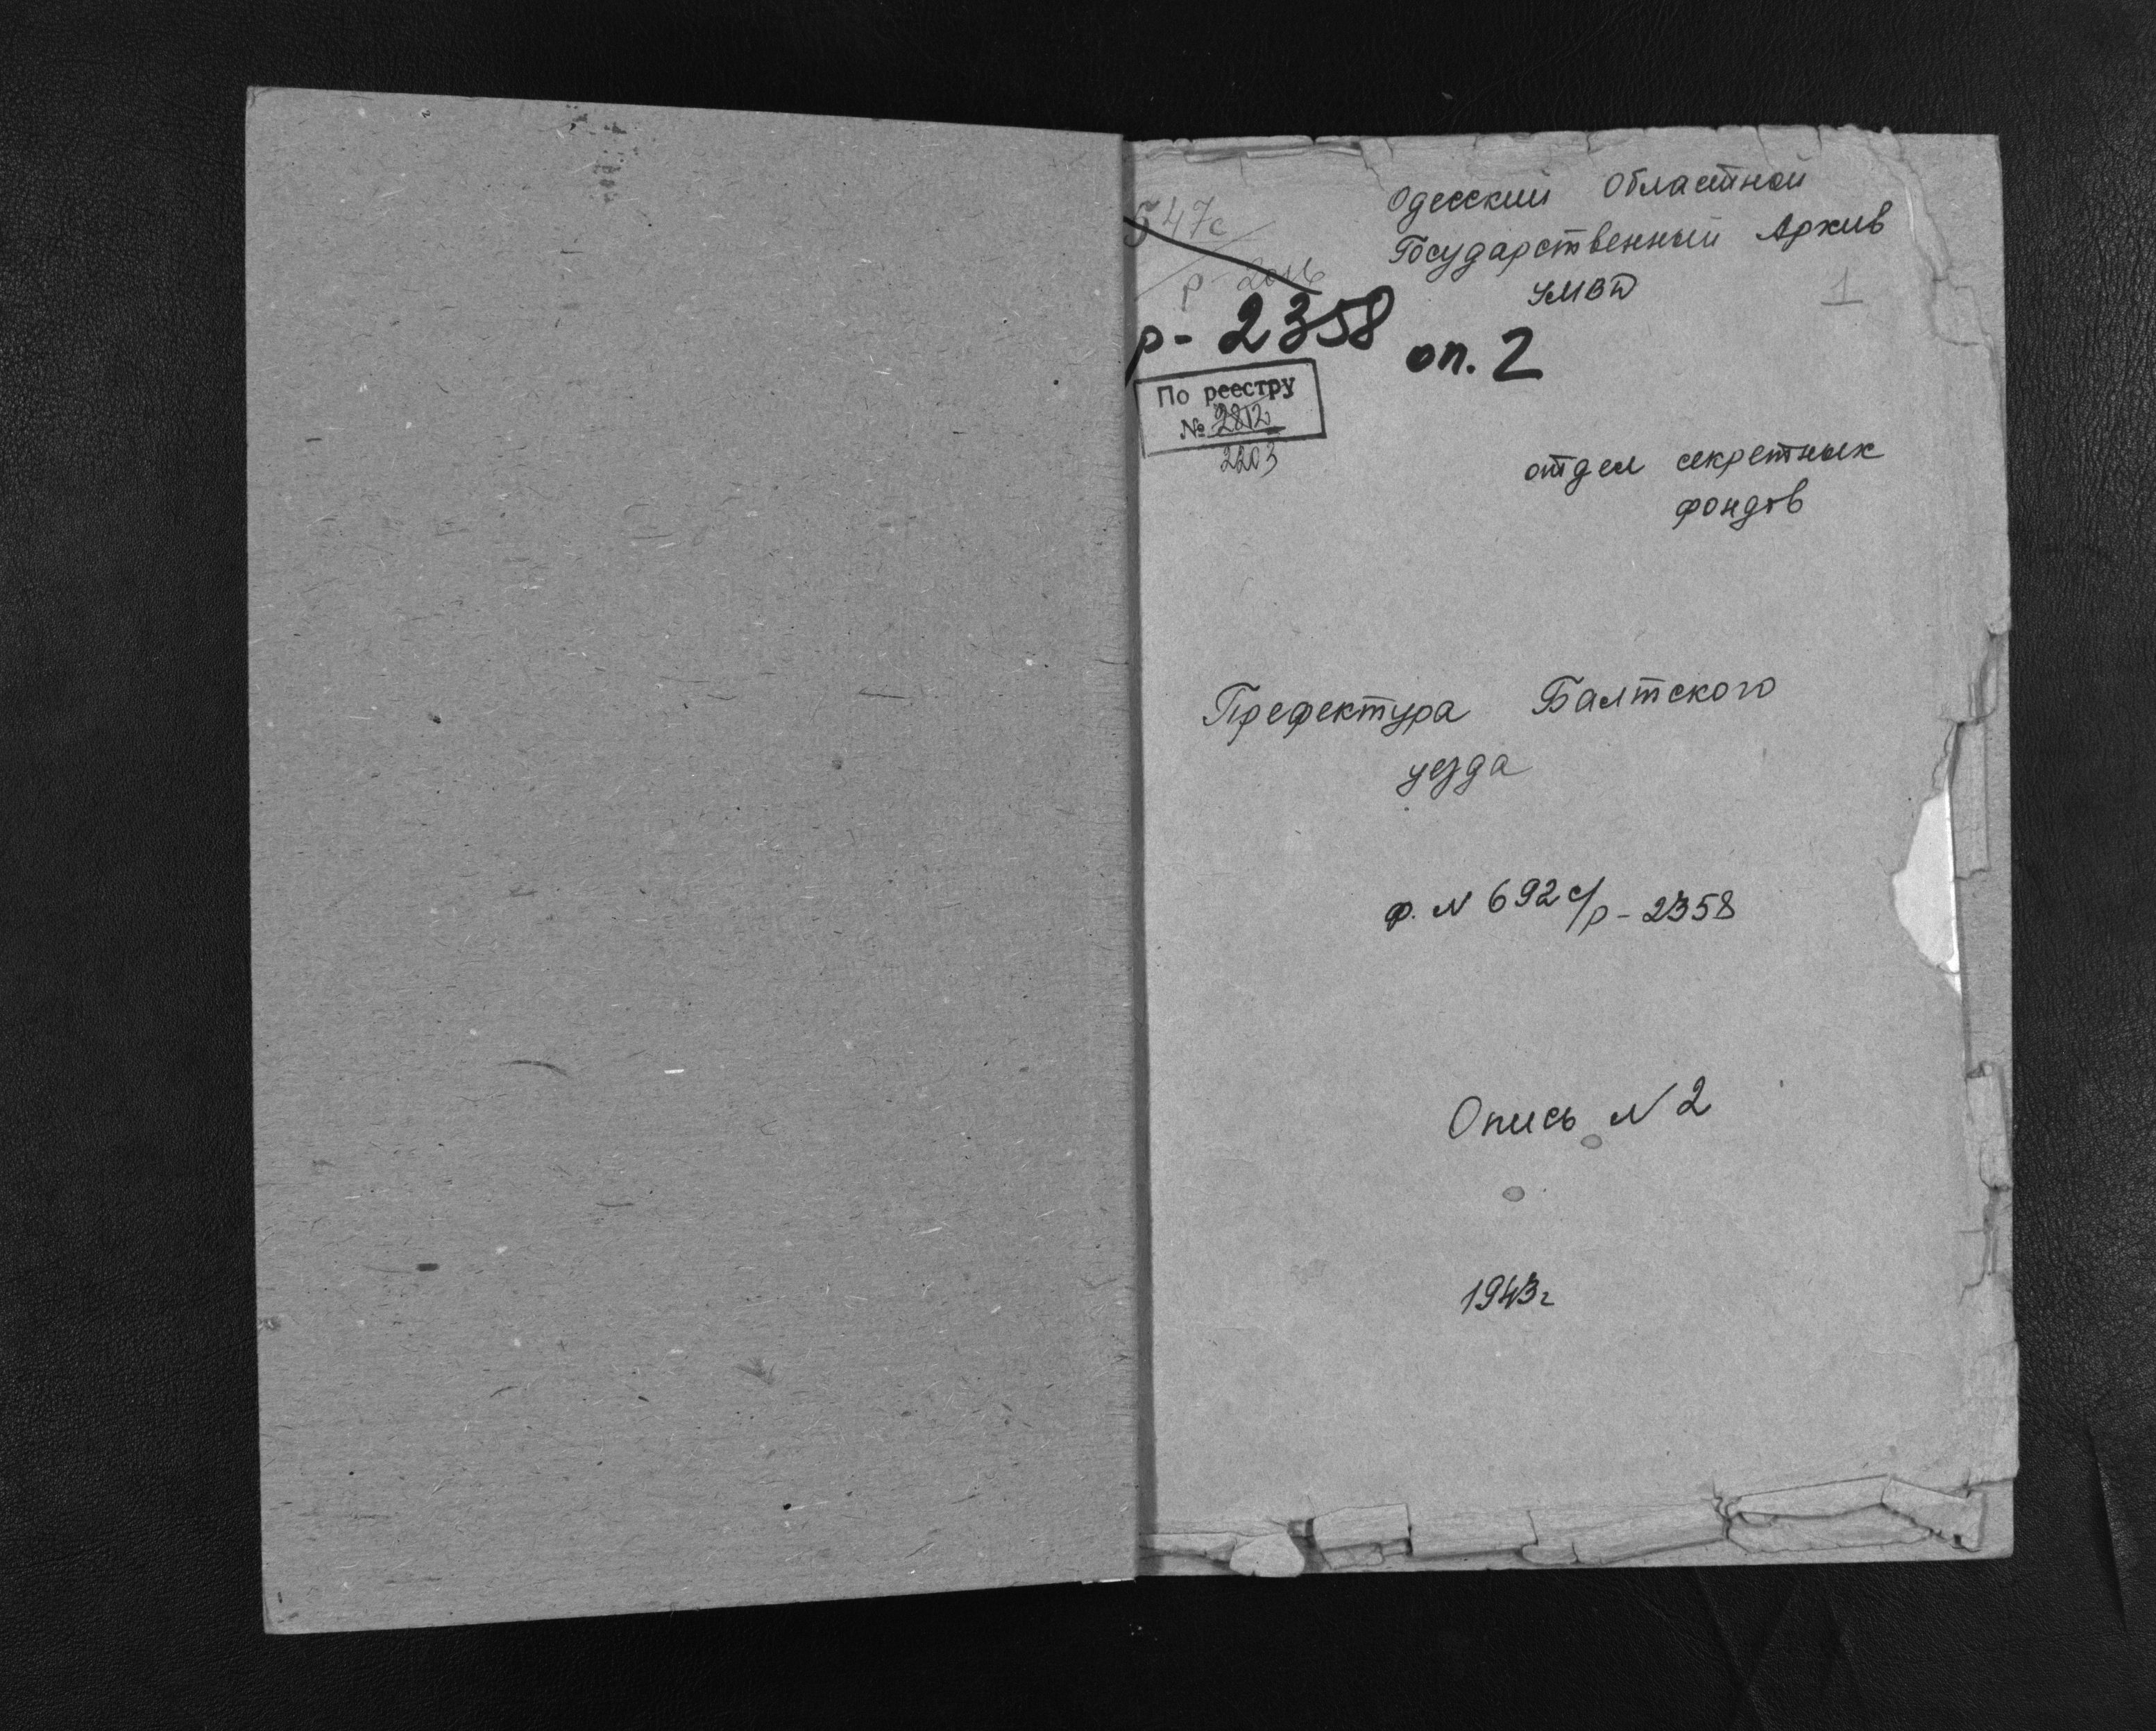 547с
р-2016
Одесский Областной
Государственный Архив
УМВД
1
р-2358 оп. 2
По реестру
№ 2812
2203
отдел секретных
фондов
Префектура Балтского
уезда
ф. N 692 с/р-2358
Опись N 2
1943г